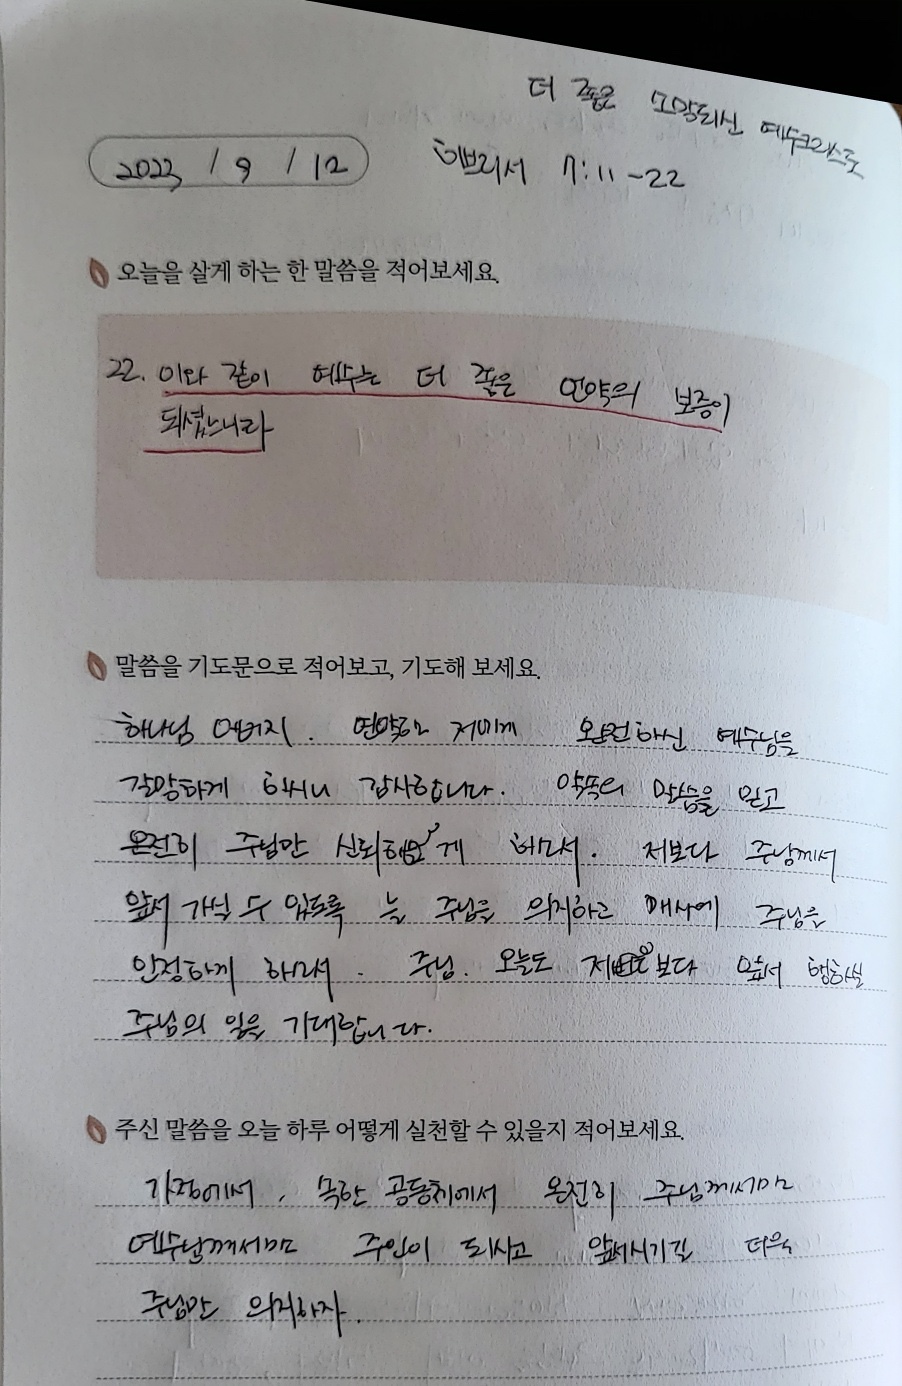 더 좋은 소망되신 예수그리스도
2023 / 9 / 12 히브리서 7:11-22
오늘을 살게 하는 한 말씀을 적어보세요.
22. 이와 같이 예수는 더 좋은 언약의 보증이
되셨느니라
말씀을 기도문으로 적어보고, 기도해 보세요.
하나님 아버지. 연약한 저에게 완전하신 예수님을
갈망하게 하시니 감사합니다. 약속의 말씀을 믿고
온전히 주님만 신뢰하게 하소서. 저보다 주님께서
앞서 가실 수 있도록 늘 주님을 의지하고 매사에 주님을
인정하게 하소서. 주님. 오늘도 저보다 앞서 행하실
주님의 일을 기대합니다.
주신 말씀을 오늘 하루 어떻게 실천할 수 있을지 적어보세요.
가정에서, 속한 공동체에서 온전히 주님께서만
예수님께서만 주인이 되시고 앞서시기길 더욱
주님만 의지하자.